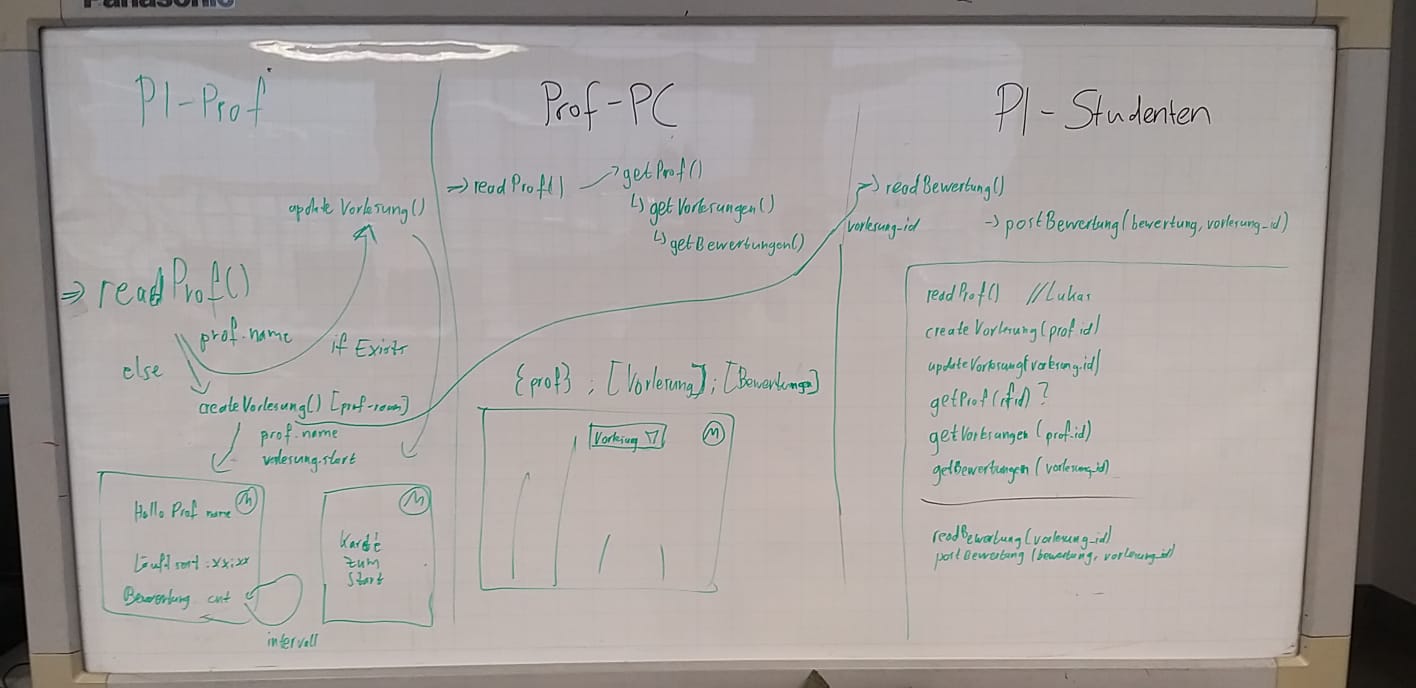 Panasonic
PI-Prof
update Vorlesung()
=> readProf()
prof.name
if Exists
else
createVorlesung() [prof-room]
prof.name
vorlesung.start
Hallo Prof name
M
Läuft seit: xx:xx
Bewertung cnt
intervall
M
Karte
zum
Start
Prof-PC
=> readProf() -> getProf()
↳ getVorlesungen()
↳ getBewertungen()
{prof} ; [Vorlesung]; [Bewertungen]
Vorlesung ▽
M
PI-Studenten
=> readBewertung()
vorlesung_id
-> postBewertung(bewertung, vorlesung_id)
readProf() //Lukas
createVorlesung(prof.id)
updateVorlesung(vorlesung.id)
getProf(rfid)?
getVorlesungen (prof.id)
getBewertungen (vorlesung_id)
readBewertung(vorlesung_id)
postBewertung (bewertung, vorlesung_id)